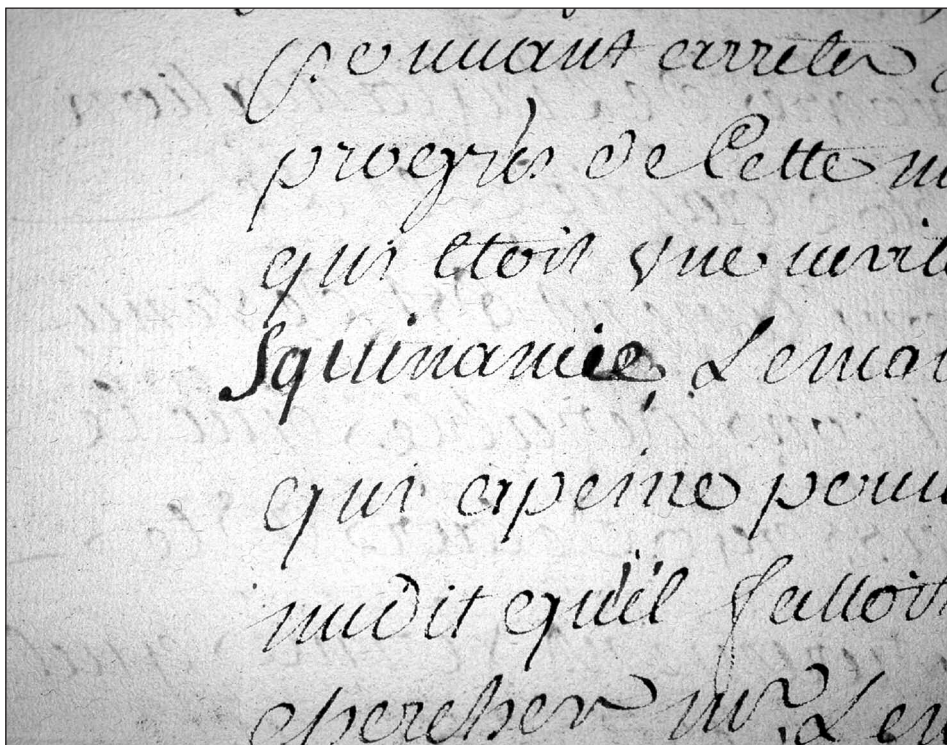 pouuant arreter
progrès de Cette m
qui etoit vne uerita
Squinancie, Le mal
qui apeine pouu
mudit qu'il falloit
chercher mr. Le